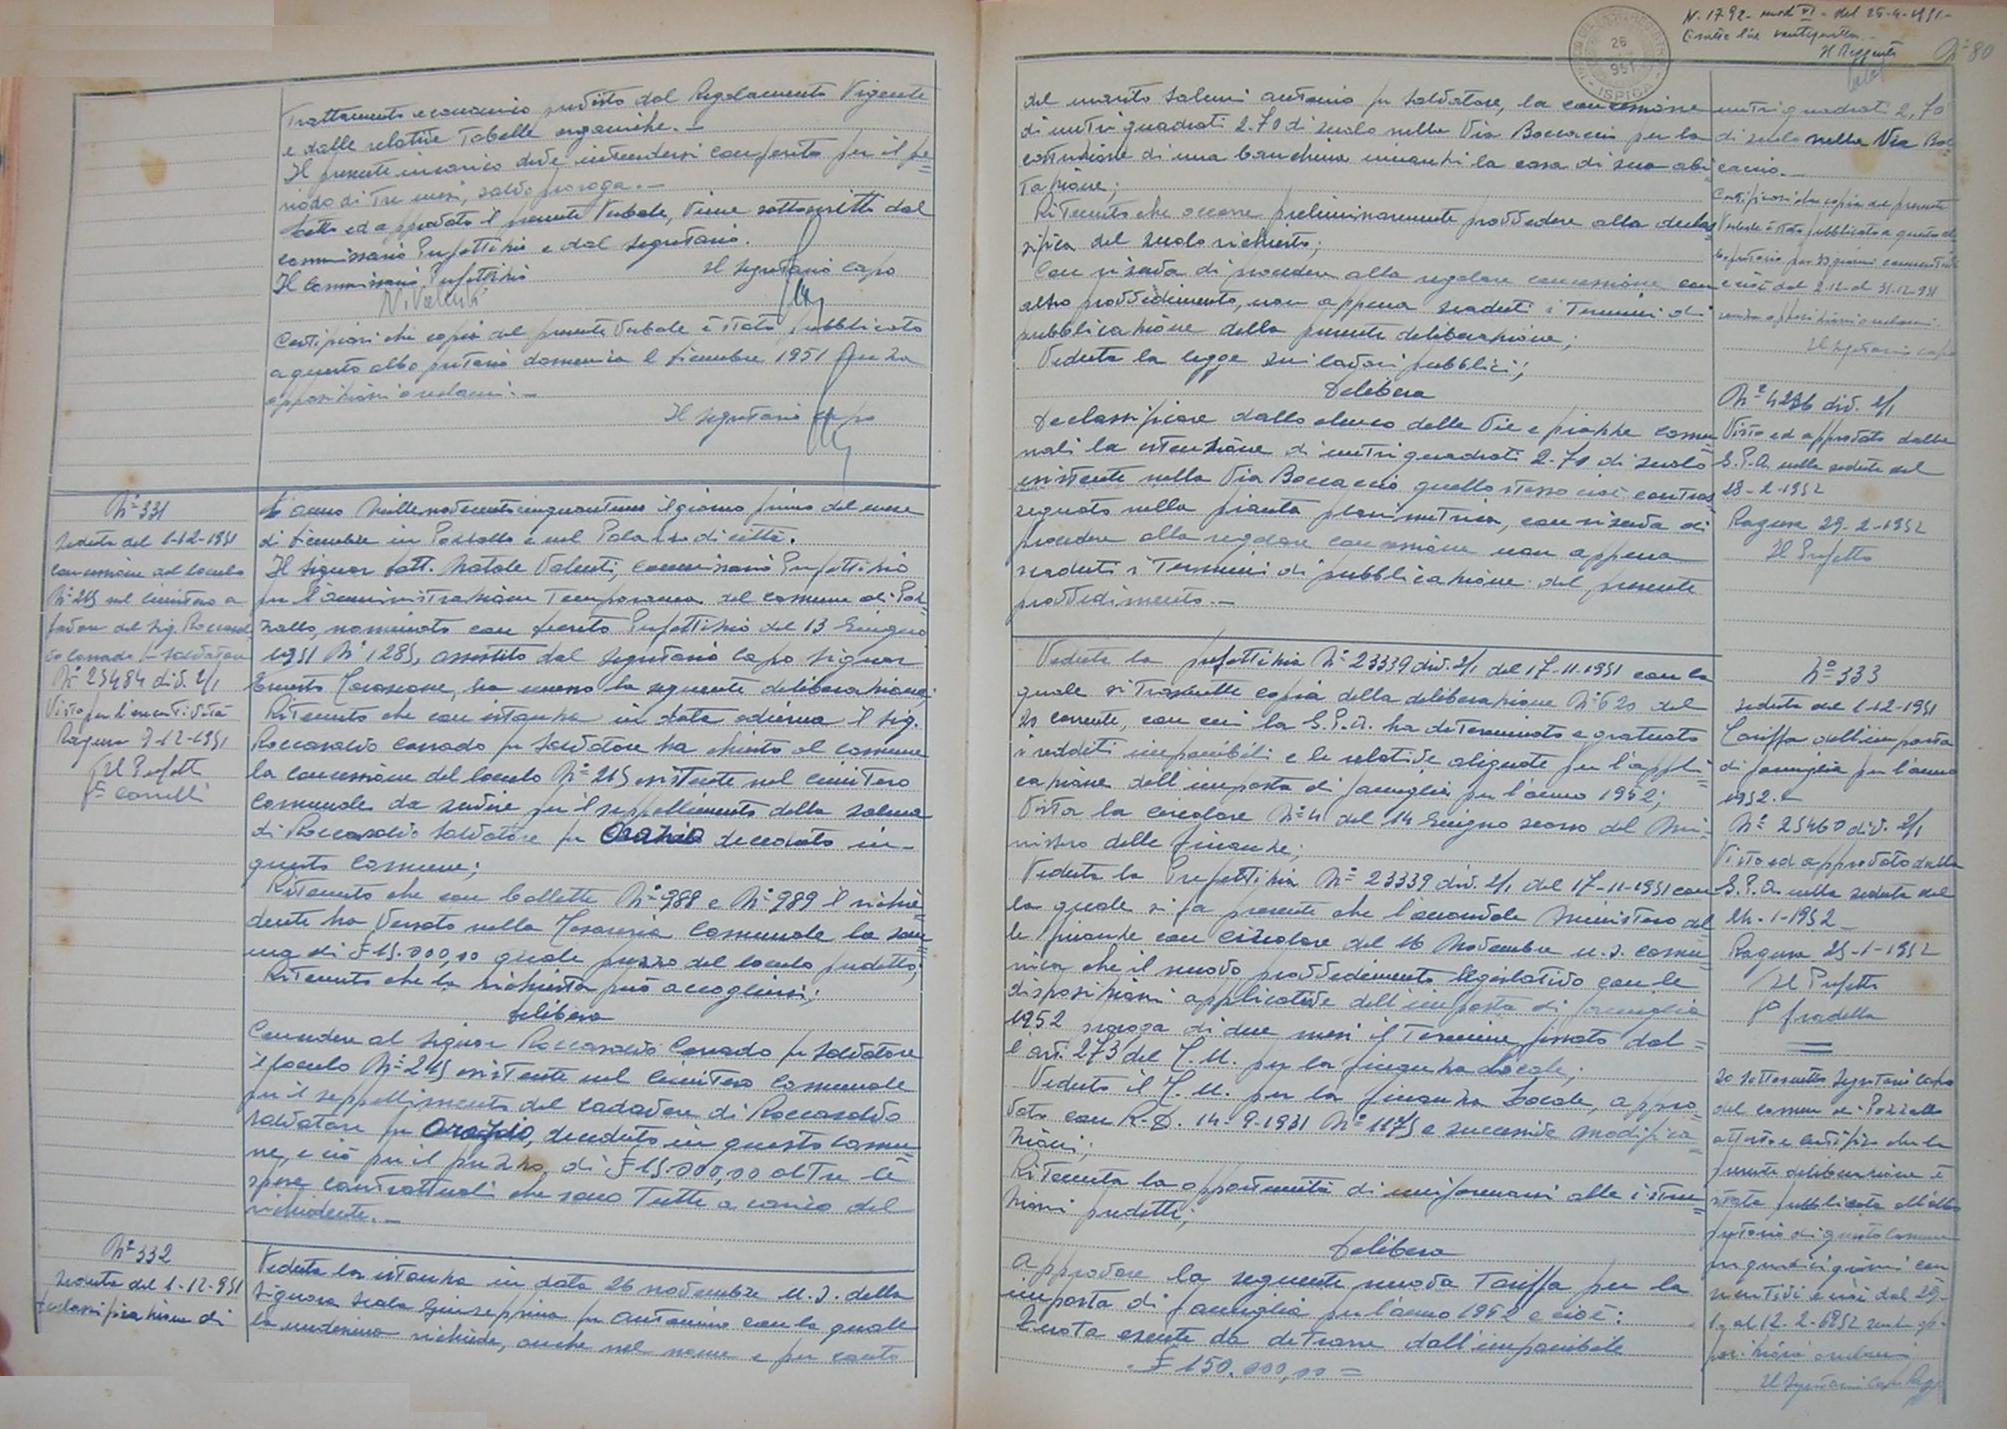 Trattamento economico previsto dal Regolamento Vigente
e dalle relative Tabelle organiche. -
Il presente incarico deve intendersi conferito per il pe=
riodo di Tre mesi, salvo proroga. -
Letto ed approvato il presente Verbale, viene sottoscritto dal
commissario Prefettizio e dal segretario.
Il Commissario Prefettizio Il Segretario capo
N. Valenti
Certificasi che copia del presente Verbale è stata pubblicata
a questo albo pretorio domenica 2 dicembre 1951 senza
opposizioni o reclami. -
Il segretario capo
N° 331
Seduta del 1-12-1951
Concessione del loculo
N° 215 nel cimitero a
favore del Sig. Roccasal
vo Corrado fu Salvatore
N° 25484 div. 2/1
Visto per l'esecutività
Ragusa 9-12-1951
Il Prefetto
L'anno Millenovecentocinquantuno il giorno primo del mese
di dicembre in Pozzallo e nel Palazzo di città.
Il Signor Dott. Natale Valenti, Commissario Prefettizio
per l'amministrazione Temporanea del comune di Poz=
zallo, nominato con Decreto Prefettizio del 13 Giugno
1951 N° 1285, assistito dal Segretario Capo Signor
Ernesto, ha emesso la seguente deliberazione;
Ritenuto che con istanza in data odierna il Sig.
Roccasalvo Corrado fu Salvatore ha chiesto al comune
la concessione del loculo N° 215 esistente nel cimitero
comunale da servire per il seppellimento della salma
di Roccasalvo Salvatore fu Orazio deceduto in
questo Comune;
Ritenuto che con bollette N° 988 e N° 989 il richie=
dente ha versato nella Tesoreria Comunale la som=
ma di £ 15.000,00 quale prezzo del loculo predetto;
Ritenuto che la richiesta può accogliersi;
Delibera
Concedere al Signor Roccasalvo Corrado fu Salvatore
il loculo N° 215 esistente nel Cimitero Comunale
per il seppellimento del cadavere di Roccasalvo
Salvatore fu Orazio, deceduto in questo Comu=
ne, e ciò per il prezzo di £ 15.000,00 oltre le
spese contrattuali che sono Tutte a carico del
richiedente. -
N° 332
Seduta del 1-12-951
Declassificazione di
Veduta la istanza in data 26 novembre u.s. della
Signora Scala Giuseppina fu Antonino con la quale
la medesima richiede, anche nel nome e per conto
N. 1792 - mod VI - del 25-4-1951 -
Il Reggente
N° 80
26
951
ISPICA
del marito Salemi Antonio fu Salvatore, la concessione
di metri quadrati 2.70 di suolo nella Via Boccaccio per la
costruzione di una banchina innanzi la casa di sua abi
tazione;
Ritenuto che occorre preliminarmente provvedere alla declas
sifica del suolo richiesto;
Con riserva di procedere alla regolare concessione con
altro provvedimento, non appena scaduti i Termini di
pubblicazione della presente deliberazione;
Veduta la legge sui lavori pubblici;
Delibera
Declassificare dallo elenco delle Vie e piazze comu
nali la estensione di metri quadrati 2.70 di suolo
esistente nella Via Boccaccio quello stesso cioè contras
segnato nella pianta planimetrica, con riserva di
procedere alla regolare concessione non appena
scaduti i Termini di pubblicazione del presente
provvedimento. -
metri quadrati 2,70
di suolo nella Via Boc=
caccio. -
Certificasi che copia del presente
Verbale è stata pubblicata a questo albo
pretorio per 30 giorni consecutivi
e cioè dal 2.12 al 31.12.951
senza opposizioni o reclami.
Il Segretario capo
N° 4276 div. 2/1
Visto ed approvato dalla
G.P.A. nella seduta del
28-2-1952
Ragusa 29-2-1952
Il Prefetto
Veduta la prefettizia N° 23339 div. 2/1 del 17-11-1951 con la
quale si trasmette copia della deliberazione N° 620 del
20 corrente, con cui la G.P.A. ha determinato e graduato
i redditi imponibili e le relative aliquote per l'appli=
cazione dell'imposta di famiglia per l'anno 1952;
Vista la circolare N° 4 del 14 Giugno scorso del Mini=
nistero delle Finanze;
Veduta la Prefettizia N° 23339 div. 2/1 del 17-11-1951 con
la quale si fa presente che l'onorevole Ministero del
le Finanze con circolare del 16 Novembre u.s. comu=
nica che il nuovo provvedimento legislativo con le
disposizioni applicative dell'imposta di famiglia
1952 proroga di due mesi il Termine fissato dal=
l'art. 273 del T.U. per la finanza locale;
Veduto il T.U. per la finanza Locale, appro=
vato con R.D. 14-9-1931 N° 1175 e successive modifica=
zioni;
Ritenuta la opportunità di uniformarsi alle istru=
zioni predette;
Delibera
Approvare la seguente nuova Tariffa per la
imposta di famiglia per l'anno 1952 e cioè:
Quota esente da detrarre dall'imponibile
£ 150.000,00 =
N° 333
Seduta del 1-12-1951
Tariffa dell'imposta
di famiglia per l'anno
1952. -
N° 25460 div. 2/1
Visto ed approvato dalla
G.P.A. nella seduta del
24-1-1952 -
Ragusa 25-1-1952
Il Prefetto
Io sottoscritto Segretario Capo
del comune di Pozzallo
attesto e certifico che la
presente deliberazione è
stata pubblicata all'albo
pretorio di questo Comune
per quindici giorni con
secutivi e cioè dal 29-
1- al 12-2-1952 senza op-
posizioni o reclami
Il Segretario Capo